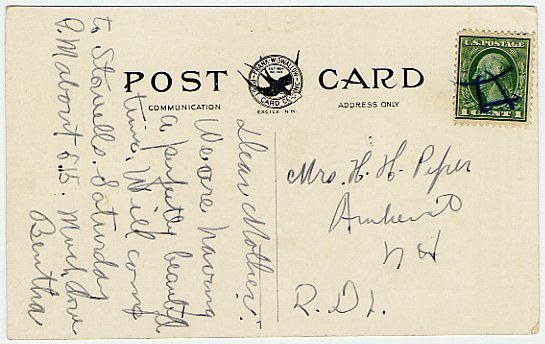 POST CARD
FRANK W. SWALLOW
POST CARD CO. INC.
EXETER N.H.
COMMUNICATION
ADDRESS ONLY
U.S. POSTAGE
1 CENTS 1
Dear Mother:
We are having
a perfectly beautiful
time. Will come
to Stowells. Saturday
P.M about 5.15. Much love
Bertha
Mrs. H. H. Piper
Amherst
N H
R. D 1.